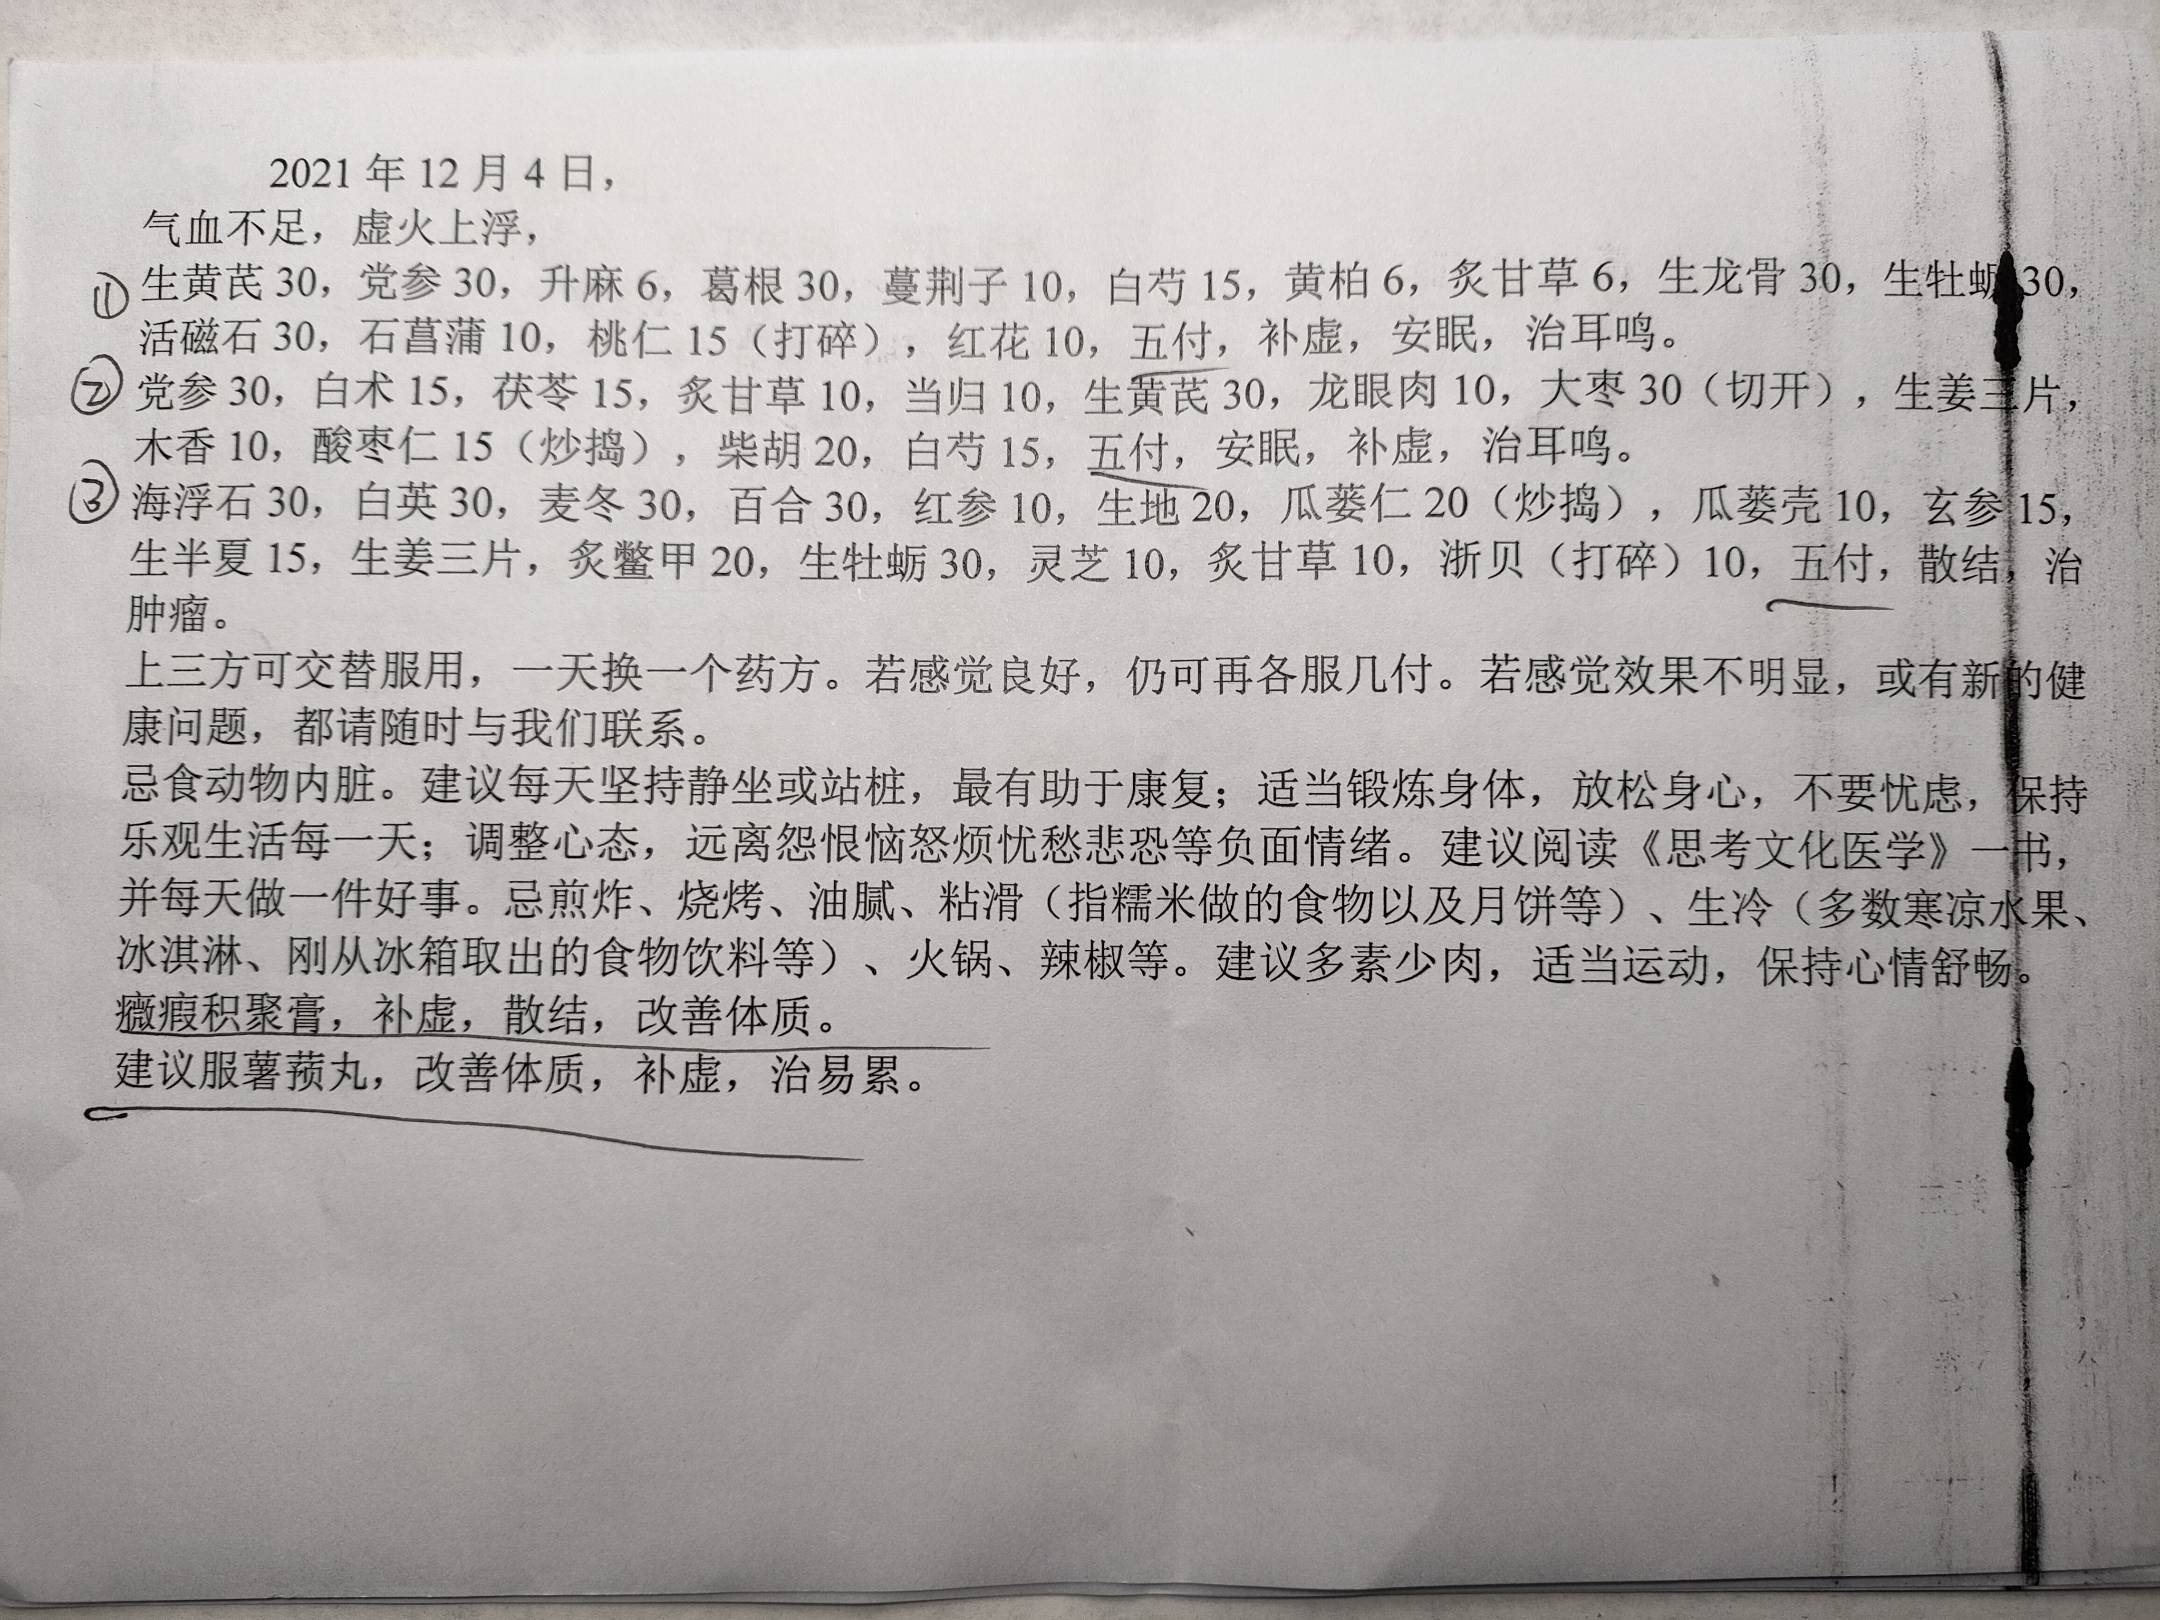 2021 年 12 月 4 日，
气血不足，虚火上浮，
① 生黄芪 30，党参 30，升麻 6，葛根 30，蔓荆子 10，白芍 15，黄柏 6，炙甘草 6，生龙骨 30，生牡蛎 30，
活磁石 30，石菖蒲 10，桃仁 15（打碎），红花 10，五付，补虚，安眠，治耳鸣。
② 党参 30，白术 15，茯苓 15，炙甘草 10，当归 10，生黄芪 30，龙眼肉 10，大枣 30（切开），生姜三片，
木香 10，酸枣仁 15（炒捣），柴胡 20，白芍 15，五付，安眠，补虚，治耳鸣。
③ 海浮石 30，白英 30，麦冬 30，百合 30，红参 10，生地 20，瓜蒌仁 20（炒捣），瓜蒌壳 10，玄参 15，
生半夏 15，生姜三片，炙鳖甲 20，生牡蛎 30，灵芝 10，炙甘草 10，浙贝（打碎）10，五付，散结，治
肿瘤。
上三方可交替服用，一天换一个药方。若感觉良好，仍可再各服几付。若感觉效果不明显，或有新的健
康问题，都请随时与我们联系。
忌食动物内脏。建议每天坚持静坐或站桩，最有助于康复；适当锻炼身体，放松身心，不要忧虑，保持
乐观生活每一天；调整心态，远离怨恨恼怒烦忧愁悲恐等负面情绪。建议阅读《思考文化医学》一书，
并每天做一件好事。忌煎炸、烧烤、油腻、粘滑（指糯米做的食物以及月饼等）、生冷（多数寒凉水果、
冰淇淋、刚从冰箱取出的食物饮料等）、火锅、辣椒等。建议多素少肉，适当运动，保持心情舒畅。
癥瘕积聚膏，补虚，散结，改善体质。
建议服薯蓣丸，改善体质，补虚，治易累。